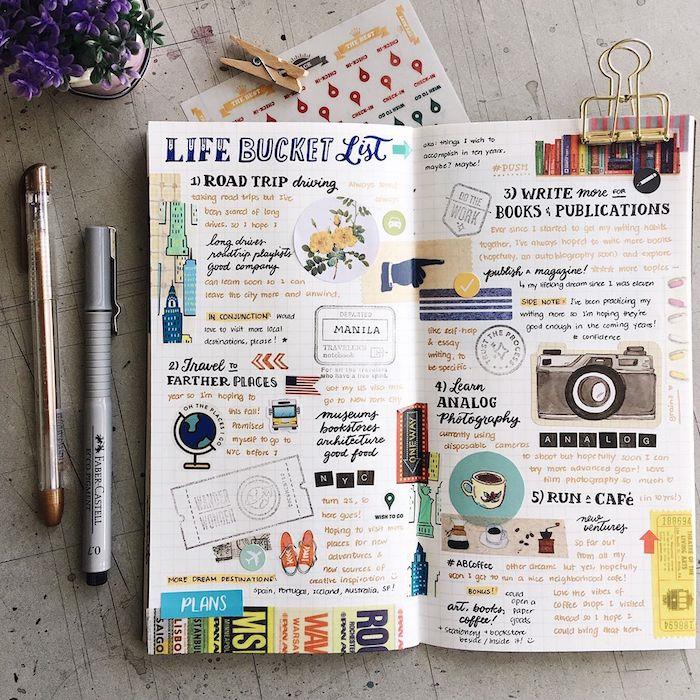 LIFE BUCKET List
1) ROAD TRIP driving
Always loved
taking road trips but I've always
been scared of long
drives, so I hope I
long drives
roadtrip playlists
good company
can learn soon so I can
leave the city more and unwind.
IN CONJUNCTION would
love to visit more local
destinations, please! *
DEPARTED
MANILA
TRAVELER'S
notebook
For all the travelers
who have a free spirit.
2) Travel to
FARTHER PLACES
Got my US visa this
year so I'm hoping to go to New York City
this fall! Promised
myself to go to
NYC before I
OH THE PLACES I'LL GO
museums
bookstores
architecture
good food
NYC
turn 25, so
here goes!
WISH TO GO
Hoping to visit more
places for new
adventures &
new sources of
creative inspiration
WANDER
WOMEN
MORE DREAM DESTINATIONS:
Spain, Portugal, Iceland, Australia, SF!
PLANS
LISBO
ISTANBUL
WARSAW
ROCHESTER
THE BEST
CHECK-IN
WISH TO GO
aka: things I wish to
accomplish in ten years,
maybe? Maybe!
#PUSH
DO THE
WORK
3) WRITE more FOR
BOOKS & PUBLICATIONS
Ever since I started to get my writing habits
together, I've always hoped to write more books
(hopefully, an autobiography soon) and explore
publish a magazine! more topics
my lifelong dream since I was eleven
like self-help
& essay
writing, to
be specific.
TRUST THE PROCESS
SIDE NOTE: I've been practicing
my writing more so I'm hoping they're
good enough in the coming years!
# confidence
4) Learn
ANALOG
Photography
currently using
disposable cameras
ANALOG
to shoot but hopefully soon I can
try more advanced gear! Love
film photography so much
ONE WAY
5) RUN A CAFé (in 10 yrs!)
new
ventures
so far out
from all my
#ABCoffee other dreams but yes, hopefully
soon I get to run a nice neighborhood café!
BONUS!
art, books,
coffee!
could
open a
paper
goods
+ stationery + bookstore
beside / inside it!
Love the vibes of
coffee shops I visited
abroad so I hope I
could bring that here.
186694
FABER-CASTELL
0.7